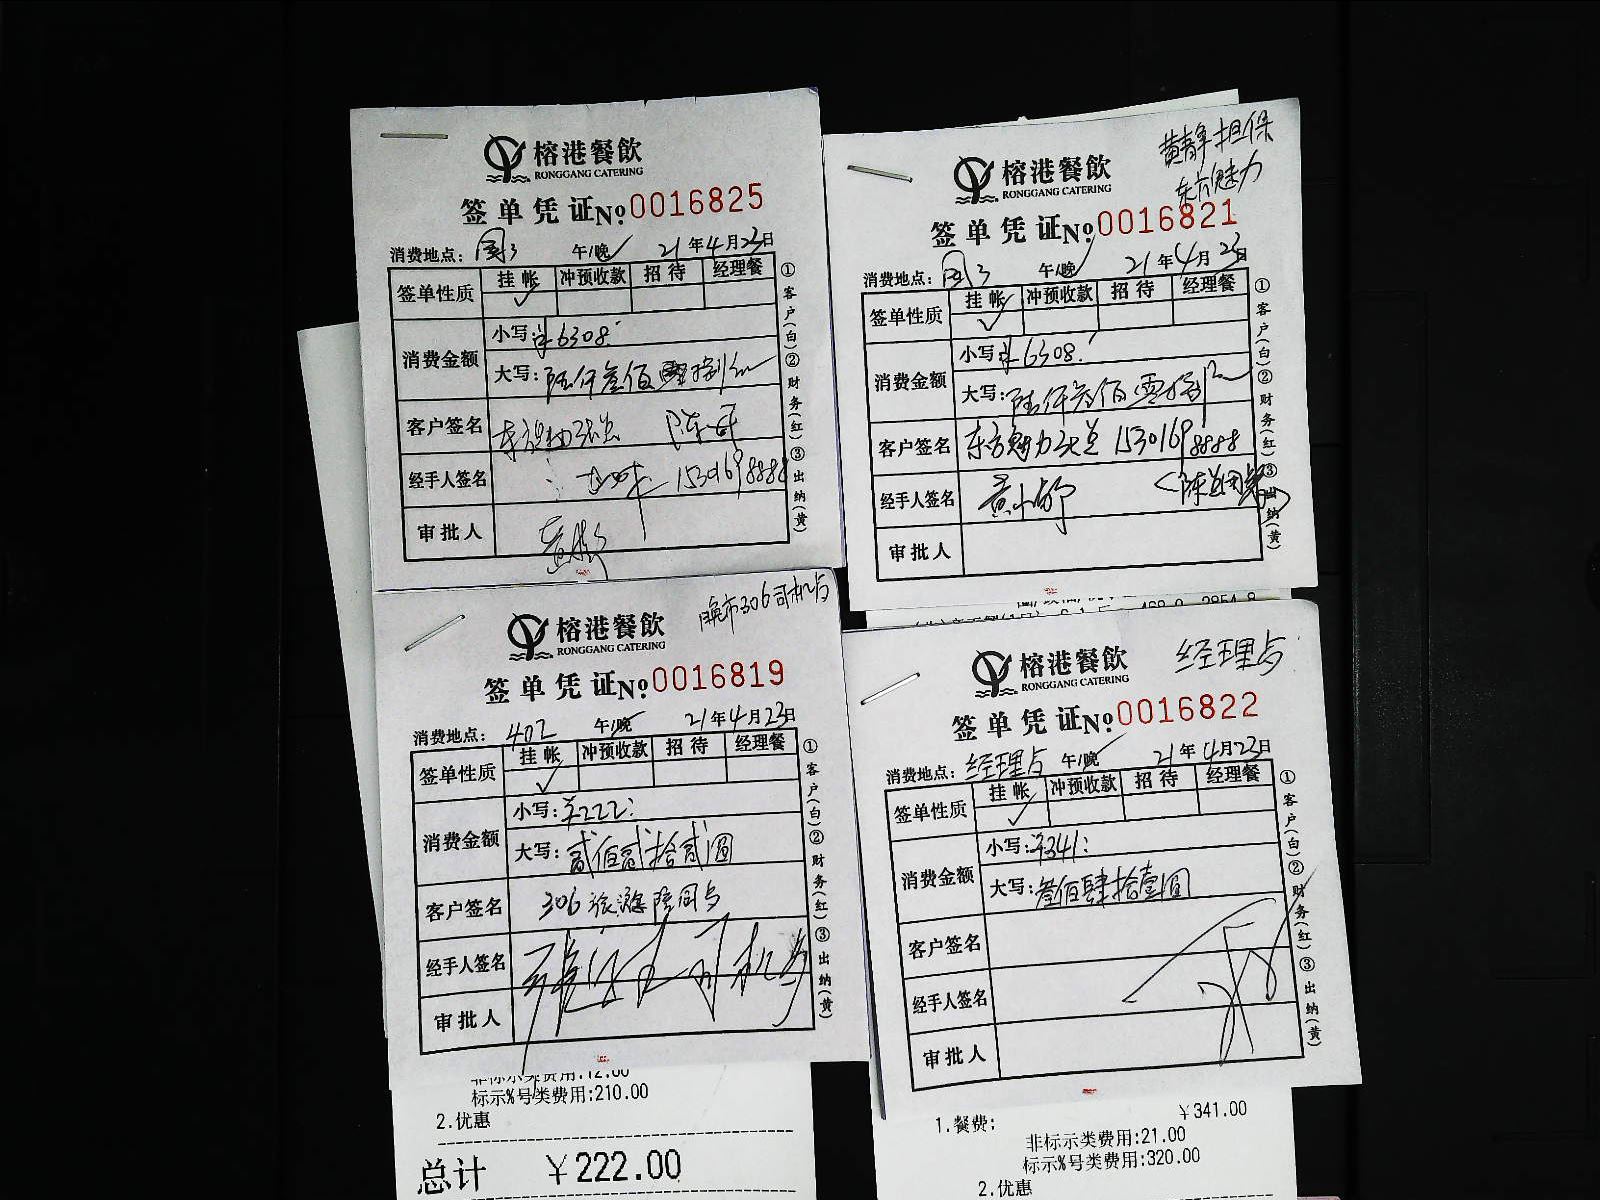 榕港餐飲
RONGGANG CATERING
签单凭证 No 0016825
消费地点： 午/晚 21年4月23日
签单性质 挂帐 冲预收款 招待 经理餐
✓
消费金额 小写：¥6308.
大写：陆仟叁佰零捌
客户签名
经手人签名 15301698888
审批人
①客户(白)②财务(红)③出纳(黄)
黄静担保
东方魅力
榕港餐飲
RONGGANG CATERING
签单凭证 No 0016821
消费地点： 午/晚 21年4月23日
签单性质 挂帐 冲预收款 招待 经理餐
✓
消费金额 小写：¥6308.
大写：陆仟叁佰零捌
客户签名 东方魅力 15301698888
经手人签名
审批人
①客户(白)②财务(红)③出纳(黄)
晚市306司机与
榕港餐飲
RONGGANG CATERING
签单凭证 No 0016819
消费地点：402 午/晚 21年4月23日
签单性质 挂帐 冲预收款 招待 经理餐
✓
消费金额 小写：¥222.
大写：贰佰贰拾贰圆
客户签名 306旅游陪同与
经手人签名 司机
审批人
①客户(白)②财务(红)③出纳(黄)
非标示类费用:12.00
标示%号类费用:210.00
2.优惠
总计 ¥222.00
经理与
榕港餐飲
RONGGANG CATERING
签单凭证 No 0016822
消费地点：经理与 午/晚 21年4月23日
签单性质 挂帐 冲预收款 招待 经理餐
✓
消费金额 小写：¥341.
大写：叁佰肆拾壹圆
客户签名
经手人签名
审批人
①客户(白)②财务(红)③出纳(黄)
1.餐费: ¥341.00
非标示类费用:21.00
标示%号类费用:320.00
2.优惠